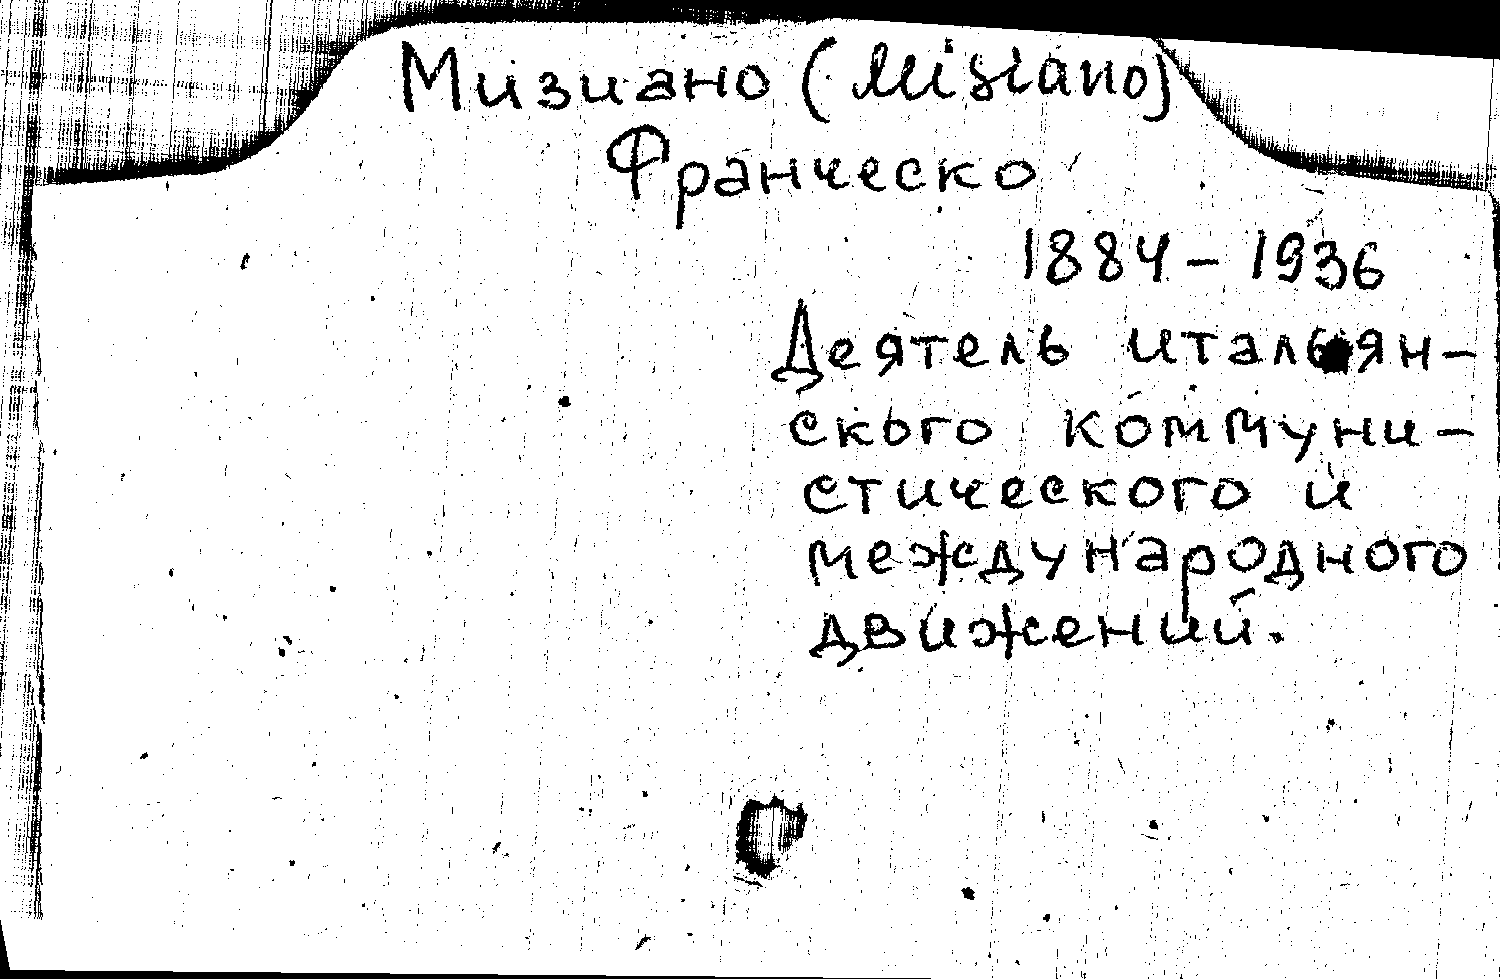 Мизиано (Misiano)
Франческо
1884 - 1936
Деятель итальян-
ского коммуни-
стического и
международного
движений.